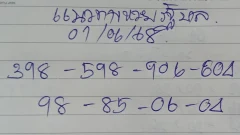 แนวทางหวยรัฐบาล
01/06/68
398 - 598 - 906 - 604
98 - 85 - 06 - 04